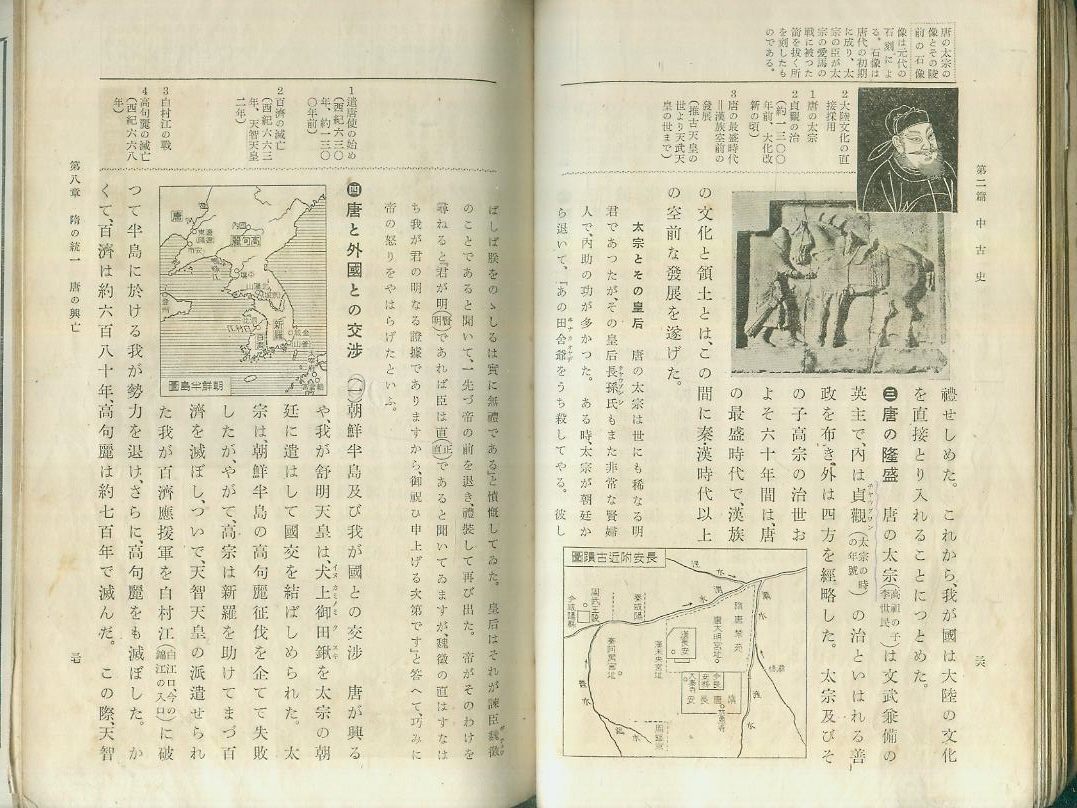 第二篇 中古史
唐の太宗の
像とその陵
前の石像
像は元代の
石刻によ
る。石像は
唐代の初期
に成り、太
宗の臣が太
宗の愛馬の
戰に被つた
箭を拔く所
を刻したも
のである。
2 大陸文化の直
接採用
1 唐の太宗
2 貞觀の治
(約一三〇〇
年前、大化改
新の頃)
3 唐の最盛時代
＝漢族空前の
發展
(推古天皇の
世より天武天
皇の世まで)
禮せしめた。 これから、我が國は大陸の文化
を直接とり入れることにつとめた。
㊂ 唐の隆盛 唐の太宗(高祖の子李世民)は文武兼備の
英主で、内は貞觀(太宗の時の年號)の治といはれる善
政を布き、外は四方を經略した。 太宗及びそ
の子高宗の治世お
よそ六十年間は、唐
の最盛時代で漢族
の空前な發展を遂げた。
の文化と領土とは、この間に秦漢時代以上
太宗とその皇后 唐の太宗は世にも稀なる明
君であつたが、その皇后長孫氏もまた非常な賢婦
人で、内助の功が多かつた。 ある時、太宗が朝廷か
ら退いて、『あの田舍爺をうち殺してやる。 彼し
長安附近古蹟圖
隋唐禁苑
唐大明宮址
漢長安
漢未央宮址
秦阿房宮址
周武王陵
秦咸陽
隋唐長安
大慈恩寺
渭水
ばしば朕をのゝしるは實に無禮である』と憤慨してゐた。 皇后はそれが諫臣魏徵
のことであると聞いて、一先づ帝の前を退き、禮裝して再び出た。 帝がそのわけを
尋ねると『君が明(賢明)であれば臣は直(正直)であると聞いてゐますが、魏徵の直はすなは
ち我が君の明なる證據でありますから、御祝ひ申上げる次第です』と答へて巧みに
帝の怒りをやはらげたといふ。
1 遣唐使の始め
(西紀六三〇
年、約一三〇
〇年前)
2 百濟の滅亡
(西紀六六三
年、天智天皇
二年)
3 白村江の戰
4 高句麗の滅亡
(西紀六六八
年)
㊃ 唐と外國との交涉 (一)朝鮮半島及び我が國との交涉 唐が興る
や我が舒明天皇は、犬上御田鍬を太宗の朝
廷に遣はして國交を結ばしめられた。 太
宗は、朝鮮半島の高句麗征伐を企てて失敗
したが、やがて、高宗は新羅を助けてまづ百
濟を滅ぼし、ついで、天智天皇の派遣せられ
た我が百濟應援軍を白村江(白江口今の錦江の入口)に破
つて半島に於ける我が勢力を退け、さらに、高句麗をも滅ぼした。 か
くて、百濟は約六百八十年、高句麗は約七百年で滅んだ。 この際、天智
朝鮮半島圖
唐
高句麗
新羅
百濟
第八章 隋の統一 唐の興亡